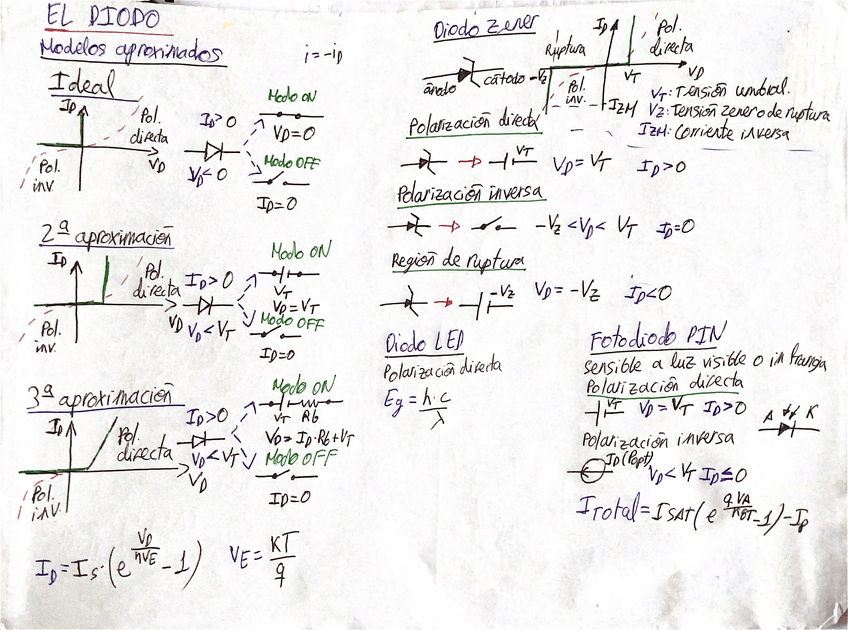 EL DIODO
Modelos aproximados
i=-iD
Ideal
ID
Pol. directa
Pol. inv.
VD
ID>0
VD<0
Modo ON
VD=0
Modo OFF
ID=0
2ª aproximación
ID
Pol. directa
Pol. inv.
VD
ID>0
VD<VT
Modo ON
VT
VD=VT
Modo OFF
ID=0
3ª aproximación
ID
Pol. directa
Pol. inv.
VD
ID>0
VD<VT
Modo ON
VT Rb
VD=ID·Rb+VT
Modo OFF
ID=0
ID=Is·(e^(VD/nVE)-1) VE=KT/q
Diodo Zener
ánodo
cátodo
ID
Pol. directa
Ruptura
-VZ
VT
VD
Pol. inv.
IZM
VT: Tensión umbral.
VZ: Tensión zener o de ruptura
IZM: Corriente inversa
Polarización directa
VT
VD=VT ID>0
Polarización inversa
-VZ<VD<VT ID=0
Región de ruptura
-VZ
VD=-VZ ID<0
Diodo LED
Polarización directa
Eg=h·c/λ
Fotodiodo PIN
sensible a luz visible o
Polarización directa
VT
VD=VT ID>0
A K
Polarización inversa
ID(Popt)
VD<VT ID≤0
ITotal=ISAT(e^(qVA/KBT)-1)-Ip